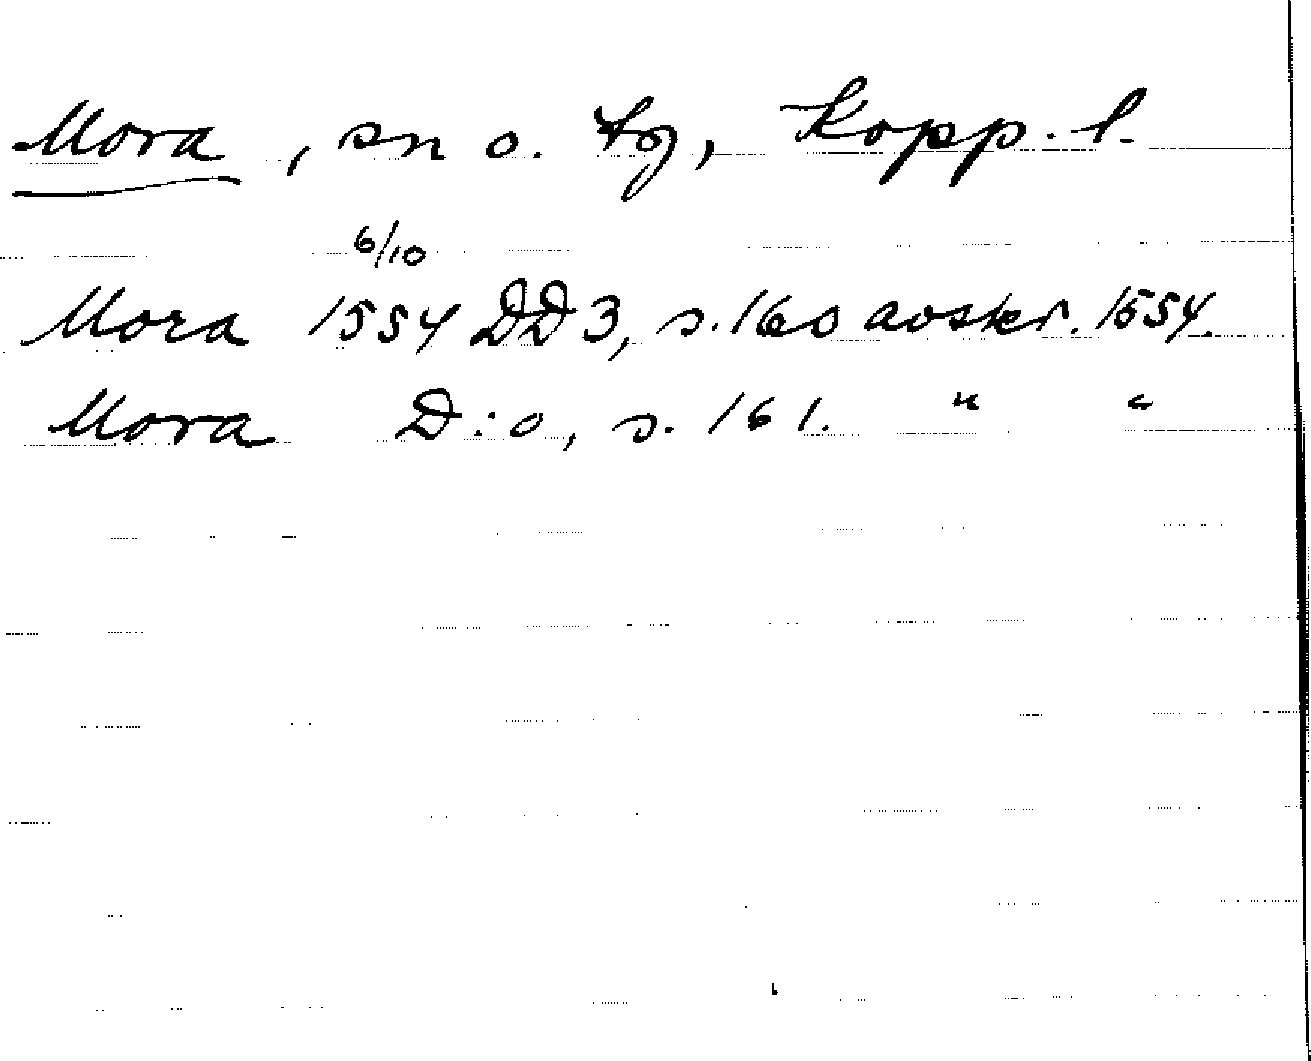 Mora, sn o. tg, Kopp. l.
6/10
Mora 1554 DD 3, s. 160 avskr. 1554.
Mora D:o, s. 161. " "